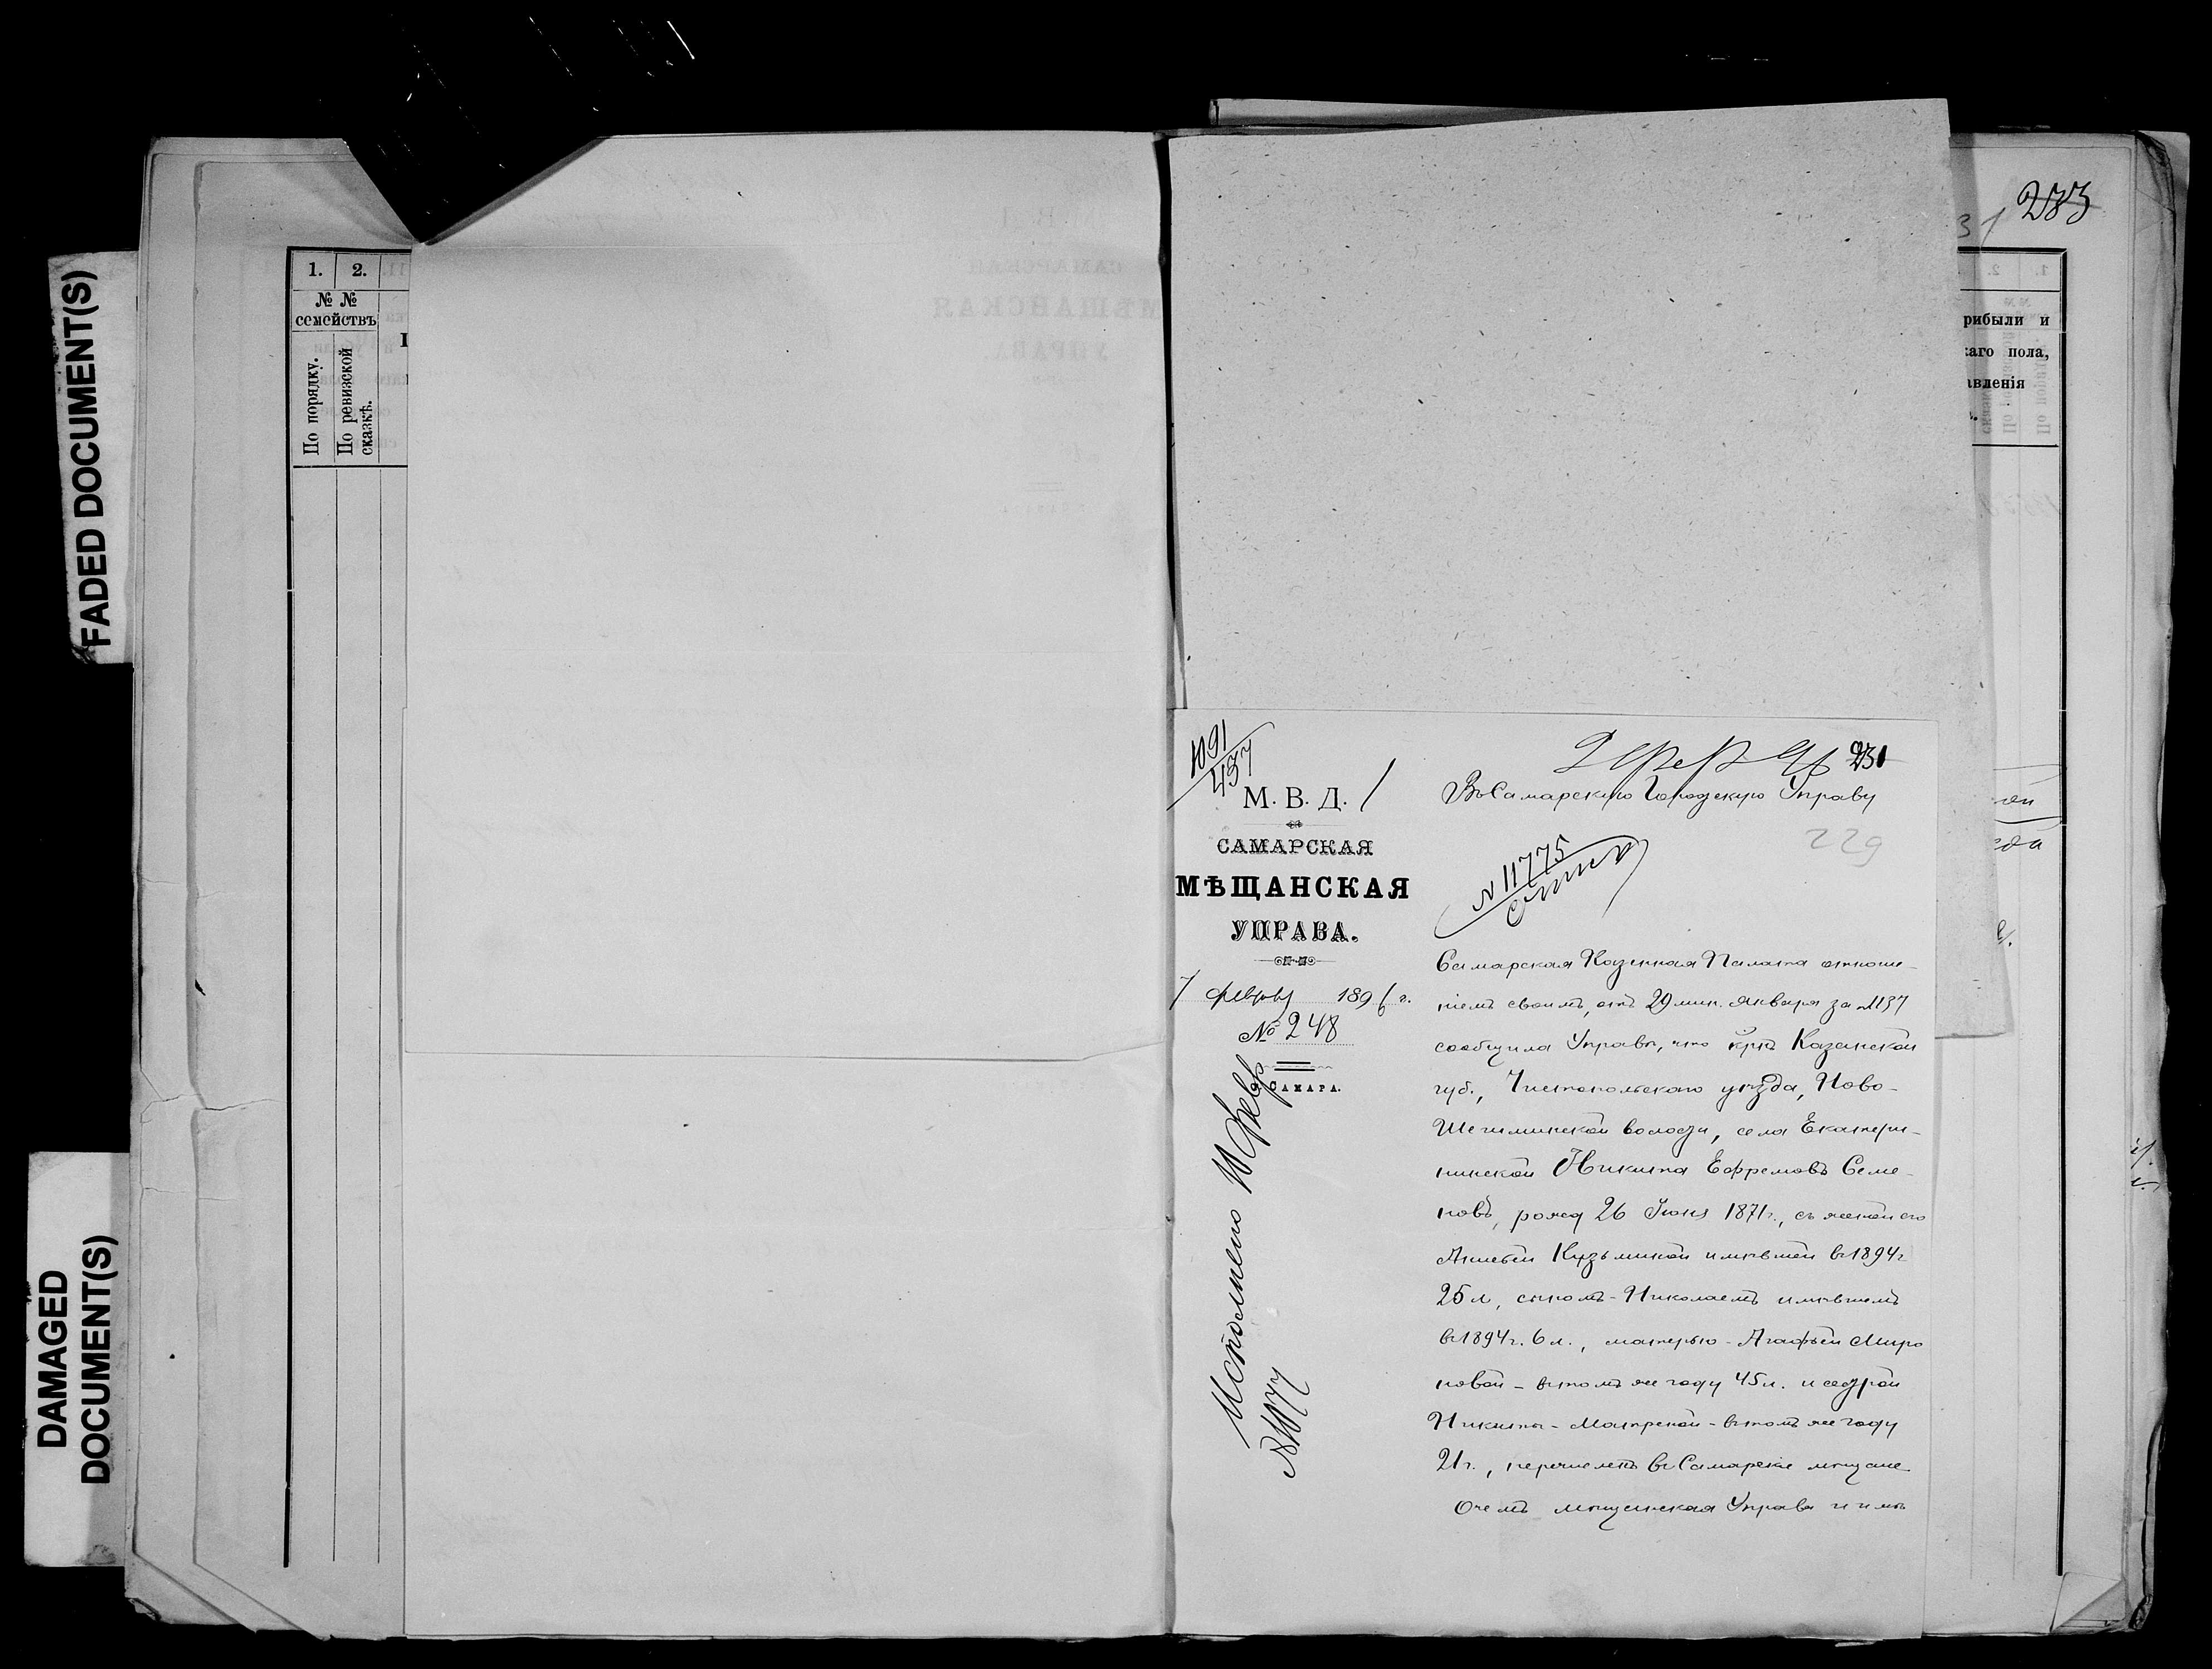 FADED DOCUMENT(S)
DAMAGED
DOCUMENT(S)
1. 2.
№ №
семействъ
По порядку.
По ревизской
сказкѣ.
233
31
рибыли и
каго пола,
авленія
1091
437
М. В. Д.
САМАРСКАЯ
МѢЩАНСКАЯ
УПРАВА.
7 февр 1896 г.
№ 248
САМАРА.
Исполнено 10 февр
№1077
231
Въ Самарскую Городскую Управу
229
№ 11775
Самарская Казенная Палата отноше-
ніемъ своимъ, отъ 29 мин. Января за №1137
сообщила Управѣ, что крнъ Казанской
губ., Чистопольскаго уѣзда, Ново-
Шешминской волости, села Екатери-
нинской Никита Ефремовъ Семе-
новъ, рожд 26 Іюня 1871 г., съ женой его
Кузьминой имѣвшей въ 1894 г
25 л, сыномъ - Николаемъ имѣвшемъ
въ 1894 г. 6 л., матерью - Агафьей Миро
новой - въ томъ же году 45 л. и сестрой
Никиты - Матреной - въ томъ же году
21 г., перечисленъ въ Самарскіе мѣщане
О чемъ мѣщанская Управа и имѣ